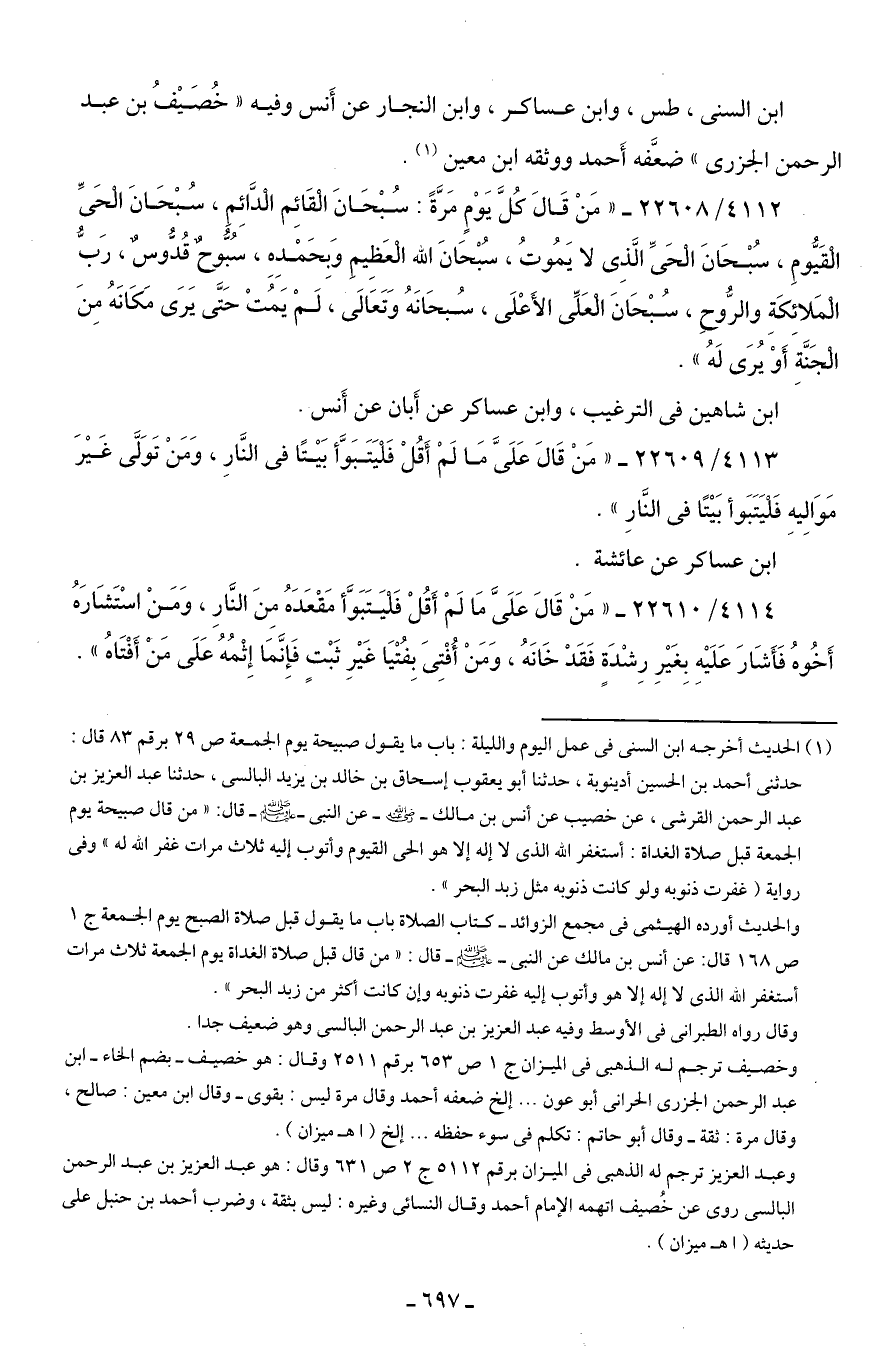 ابن السنى ، طس ، وابن عساكر ، وابن النجار عن أَنس وفيه « خُصَيْفُ بن عبد
الرحمن الجزرى » ضعَّفه أَحمد ووثقه ابن معين (١) .
٤١١٢/ ٢٢٦٠٨ ـ « مَنْ قَالَ كُلَّ يَوْمٍ مَرَّةً : سُبْحَانَ الْقَائِمِ الدَّائِمِ ، سُبْحَانَ الْحَىِّ
الْقَيُّومِ ، سُبْحَانَ الْحَىِّ الَّذِى لا يَمُوتُ ، سُبْحَانَ الله الْعَظِيمِ وَبِحَمْدِهِ ، سُبُّوحٌ قُدُّوسٌ ، رَبُّ
الْمَلائِكَةِ والرُّوحِ ، سُبْحَانَ الْعَلِّى الأَعْلَى ، سُبحَانَهُ وَتَعَالَى ، لَمْ يَمُتْ حَتَّى يَرَى مَكَانَهُ مِنَ
الْجَنَّةِ أَوْ يُرَى لَهُ » .
ابن شاهين فى الترغيب ، وابن عساكر عن أَبان عن أَنس .
٤١١٣/ ٢٢٦٠٩ ـ « مَنْ قَالَ عَلَىَّ مَا لَمْ أَقُلْ فَلْيَتَبَوَّأ بَيْتًا فى النَّارِ ، وَمَنْ تَوَلَّى غَيْرَ
مَوَالِيهِ فَلْيَتَبوأ بَيْتًا فى النَّارِ » .
ابن عساكر عن عائشة .
٤١١٤/ ٢٢٦١٠ ـ « مَنْ قَالَ عَلَىَّ مَا لَمْ أَقُلْ فَلْيَتَبَوَّأ مَقْعَدَهُ مِنَ النَّارِ ، وَمَنْ اسْتَشَارَهُ
أَخُوهُ فَأَشَارَ عَلَيْهِ بِغَيْرِ رِشْدَةٍ فَقَدْ خَانَهُ ، وَمَنْ أُفْتِىَ بِفُتْيَا غَيْرِ ثَبْتٍ فَإِنَّمَا إِثْمُهُ عَلَى مَنْ أَفْتَاهُ » .
(١) الحديث أخرجه ابن السنى فى عمل اليوم والليلة : باب ما يقول صبيحة يوم الجمعة ص ٢٩ برقم ٨٣ قال :
حدثنى أحمد بن الحسين أدينوية ، حدثنا أبو يعقوب إسحاق بن خالد بن يزيد البالسى ، حدثنا عبد العزيز بن
عبد الرحمن القرشى ، عن خصيب عن أنس بن مالك ـ رضي الله عنه ـ عن النبى ـ ﷺ ـ قال: « من قال صبيحة يوم
الجمعة قبل صلاة الغداة : أستغفر الله الذى لا إله إلا هو الحى القيوم وأتوب إليه ثلاث مرات غفر الله له » وفى
رواية ( غفرت ذنوبه ولو كانت ذنوبه مثل زبد البحر » .
والحديث أورده الهيثمى فى مجمع الزوائد ـ كتاب الصلاة باب ما يقول قبل صلاة الصبح يوم الجمعة ج ١
ص ١٦٨ قال: عن أنس بن مالك عن النبى ـ ﷺ ـ قال : « من قال قبل صلاة الغداة يوم الجمعة ثلاث مرات
أستغفر الله الذى لا إله إلا هو وأتوب إليه غفرت ذنوبه وإن كانت أكثر من زبد البحر » .
وقال رواه الطبرانى فى الأوسط وفيه عبد العزيز بن عبد الرحمن البالسى وهو ضعيف جدا .
وخصيف ترجم له الذهبى فى الميزان ج ١ ص ٦٥٣ برقم ٢٥١١ وقال : هو خصيف ـ بضم الخاء ـ ابن
عبد الرحمن الجزرى الحرانى أبو عون ... إلخ ضعفه أحمد وقال مرة ليس : بقوى ـ وقال ابن معين : صالح ،
وقال مرة : ثقة ـ وقال أبو حاتم : تكلم فى سوء حفظه ... إلخ ( ا هـ ميزان ) .
وعبد العزيز ترجم له الذهبى فى الميزان برقم ٥١١٢ ج ٢ ص ٦٣١ وقال : هو عبد العزيز بن عبد الرحمن
البالسى روى عن خُصيف اتهمه الإمام أحمد وقال النسائى وغيره : ليس بثقة ، وضرب أحمد بن حنبل على
حديثه ( ا هـ ميزان ) .
ـ ٦٩٧ ـ